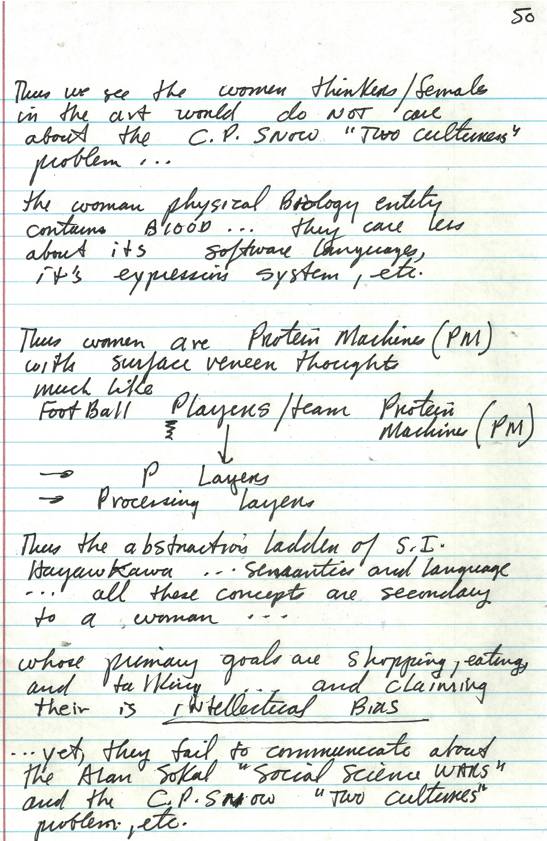 50
Thus we see the women thinkers/females
in the art would do NOT care
about the C.P. SNOW "Two cultures"
problem ...
the woman physical Biology entity
contains BLOOD ... they care less
about its software languages,
it's expression system, etc.
Thus women are Protein Machines (PM)
with surface veneer thoughts
much like
Foot Ball Players/team Protein
Machines (PM)
→ P Layers
→ Processing Layers
Thus the abstractions ladder of S.I.
Hayawkawa ... semantics and language
... all these concepts are secondary
to a woman ...
whose primary goals are shopping, eating,
and talking ... and claiming
their is intellectical Bias
... yet, they fail to communicate about
the Alan Sokal "Social Science WARS"
and the C.P. Snow "Two cultures"
problem, etc.